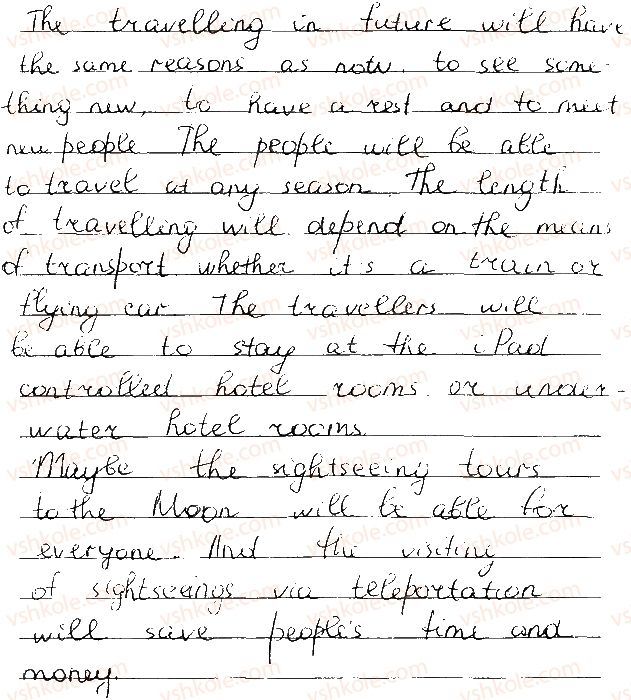 The travelling in future will have
the same reasons as now: to see some-
thing new, to have a rest and to meet
new people. The people will be able
to travel at any season. The length
of travelling will depend on the means
of transport whether it's a train or
flying car. The travellers will
be able to stay at the iPad
controlled hotel rooms or under-
water hotel rooms.
Maybe the sightseeing tours
to the Moon will be able for
everyone. And the visiting
of sightseeings via teleportation
will save people's time and
money.